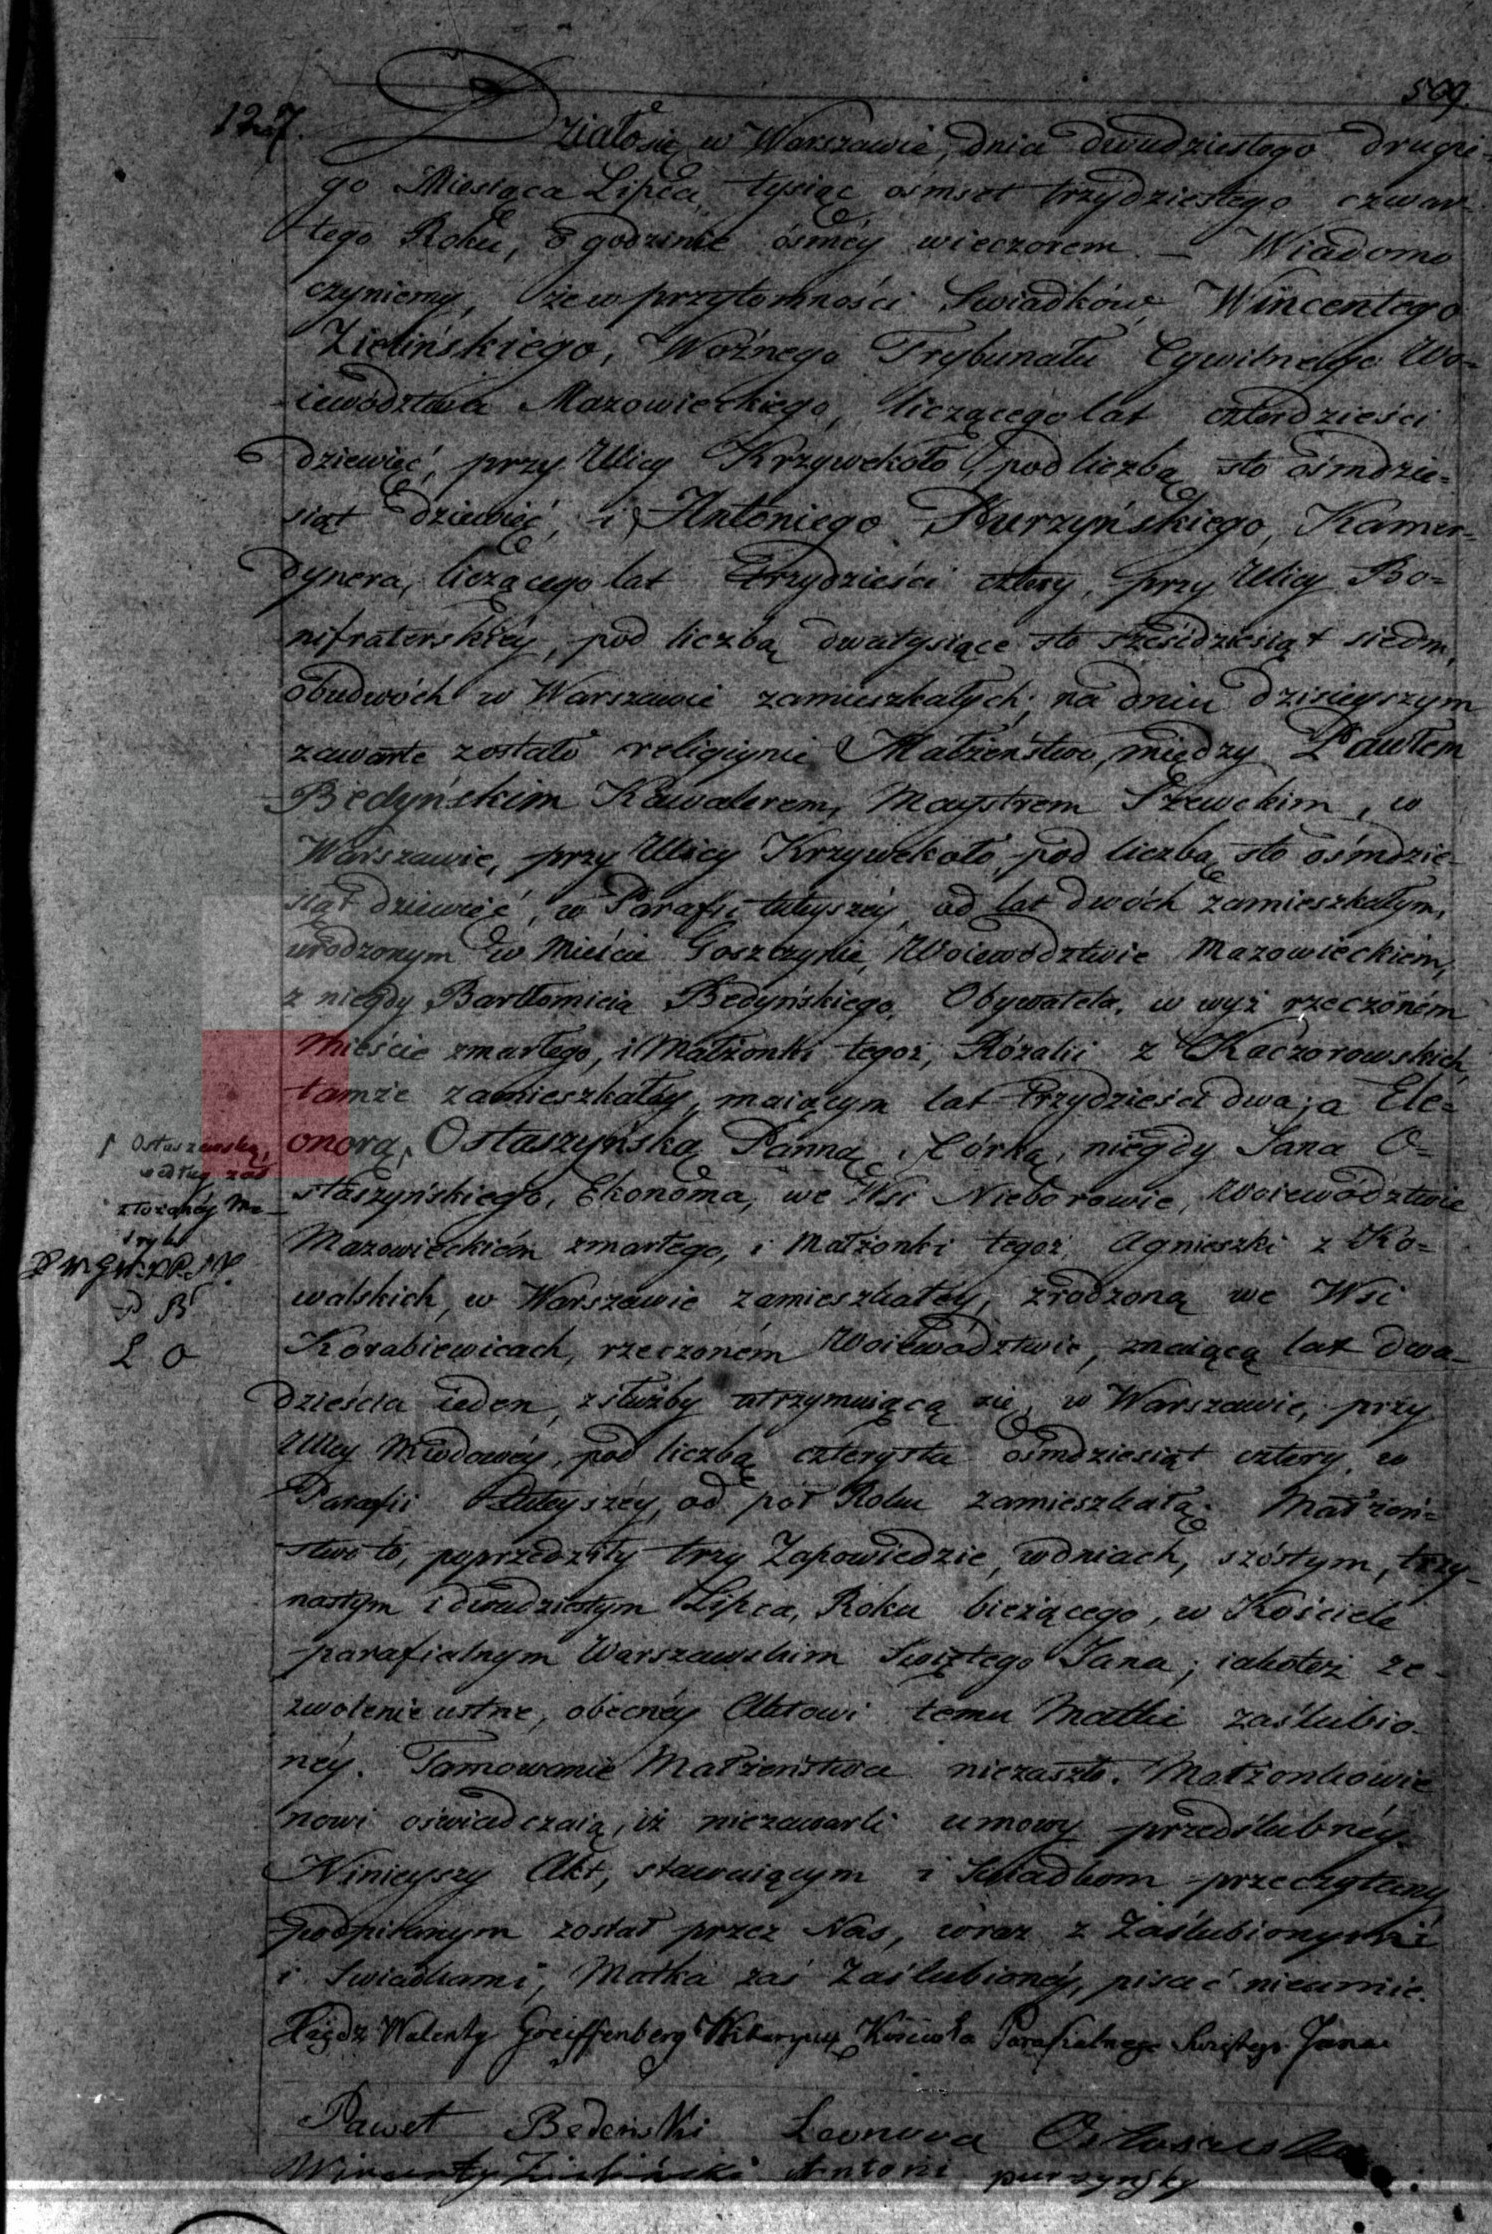 509.
127.
Działo się w Warszawie, dnia dwudziestego drugie-
go Miesiąca Lipca, tysiąc ośmset trzydziestego czwar-
tego Roku, o godzinie ósméy wieczorem. — Wiadomo
czyniemy, że w przytomności Świadków, Wincentego
Zielińskiego, Woźnego Trybunału Cywilnego Wo-
iewództwa Mazowieckiego, liczącego lat czterdzieści
dziewięć, przy Ulicy Krzywekoło pod liczbą sto ośmdzie-
siąt dziewięć, i Antoniego Purzyńskiego, Kamer-
dynera, liczącego lat trzydzieści cztery, przy Ulicy Bo-
nifraterskiéy, pod liczbą dwatysiące sto sześćdziesiąt siedm,
obudwóch w Warszawie zamieszkałych; na dniu dzisieyszym
zawarte zostało religiynie Małżeństwo, między Pawłem
Bedyńskim Kawalerem, Maystrem Szewckim, w
Warszawie, przy Ulicy Krzywekoło, pod liczbą sto ośmdzie-
siąt dziewięć, w Parafii tuteyszéy, od lat dwóch zamieszkałym,
urodzonym w Mieście Goszczynie, Woiewództwie Mazowieckiém,
z niegdy Bartłomieia Bedyńskiego, Obywatela, w wyż rzeczoném
Mieście zmarłego, i Małżonki tegoż, Rózalii z Kaczorowskich,
tamże zamieszkałéy, maiącym lat trzydzieści dwa; a Ele-
onorą, Ostaszyńską Panną, Córką, niegdy Jana O-
staszyńskiego, Ekonoma, we Wsi Nieborowie, Woiewództwie
Mazowieckiém zmarłego, i Małżonki tegoż, Agnieszki z Ko-
walskich, w Warszawie zamieszkałéy, zrodzoną we Wsi
Korabiewicach, rzeczoném Woiewództwie, maiącą lat dwa-
dzieścia ieden, z służby utrzymuiącą się, w Warszawie, przy
Ulicy Miodowéy, pod liczbą czterysta ośmdziesiąt cztery, w
Parafii tuteyszéy, od pół Roku zamieszkałą. Małżeń-
stwo to, poprzedziły trzy Zapowiedzie, w dniach, szóstym, trzy-
nastym i dwudziestym Lipca, Roku bieżącego, w Kościele
parafialnym Warszawskim Świętego Jana; iakoteż ze-
zwolenie ustne, obecnéy Aktowi temu Matki zaślubio-
néy. Tamowanie Małżeństwa niezaszło. Małżonkowie
nowi oświadczaią, iż niezawarli umowy przedślubnéy.
Ninieyszy Akt, stawaiącym i Świadkom przeczytany
podpisanym został przez Nas, wraz z Zaślubionymi
i Świadkami, Matka zaś Zaślubionéy, pisać nieumie.
Xiądz Walenty Greiffenberg Wikaryusz Kościoła Parafialnego Świętego Jana
Paweł Bedeński Leonora Ostaszeska
Wincenty Zieliński Antoni purzynsky
Ostaszewską,
według zaś
złożonéy Me-
tryki
P B
L O